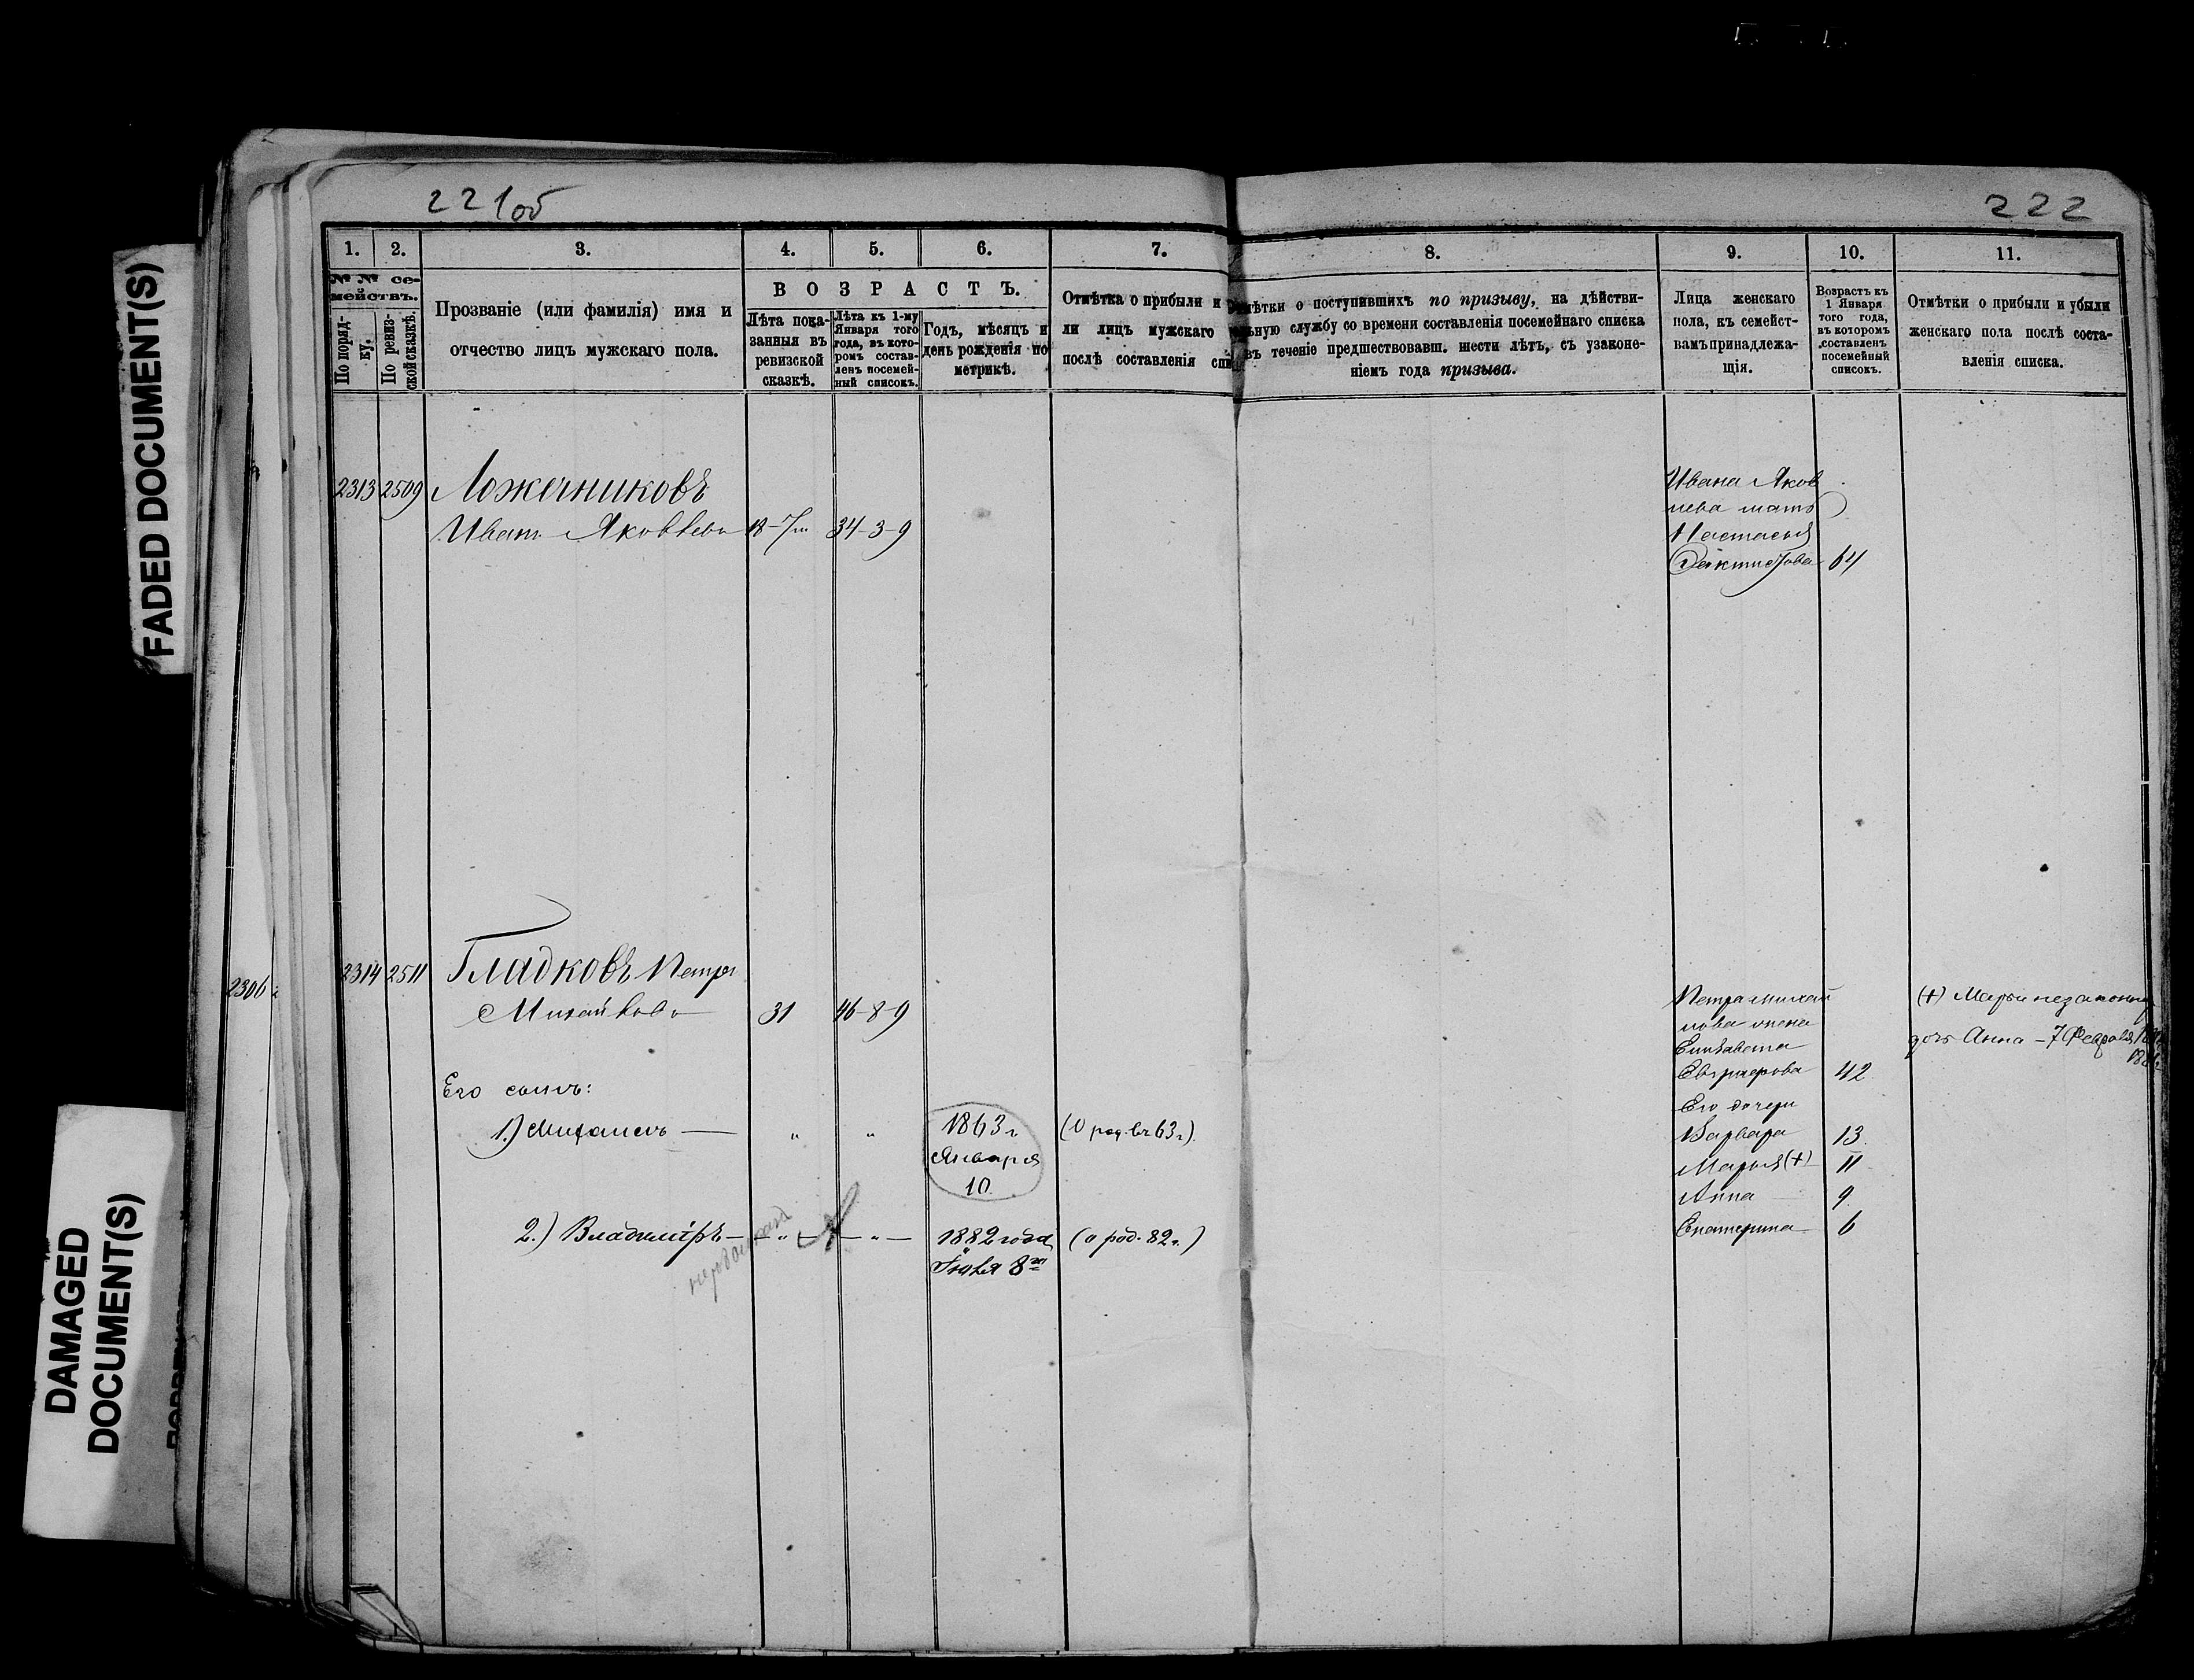 221об
222
1. 2. 3. 4. 5. 6. 7. 8. 9. 10. 11.
№ № се-
мействъ.
По поряд-
ку.
По ревиз-
ской сказкѣ.
Прозваніе (или фамилія) имя и
отчество лицъ мужскаго пола.
ВОЗРАСТЪ.
Лѣта пока-
занныя въ
ревизской
сказкѣ.
Лѣта къ 1-му
Января того
года, въ кото-
ромъ состав-
ленъ посемей-
ный списокъ.
Годъ, мѣсяцъ и
день рожденія по
метрикѣ.
Отмѣтка о прибыли и
ли лицъ мужскаго
послѣ составленія
о поступившихъ по призыву, на дѣйстви-
службу со времени составленія посемейнаго списка
въ теченіе предшествовавш. шести лѣтъ, съ узаконе-
ніемъ года призыва.
Лица женскаго
пола, къ семейст-
вамъ принадлежа-
щія.
Возрастъ къ
1 Января
того года,
въ которомъ
составленъ
посемейный
списокъ.
Отмѣтки о прибыли и убыли
женскаго пола послѣ соста-
вленія списка.
2313 2509 Ложечниковъ
Иванъ Яковлевъ 34-3-9
Ивана Яков
лева мать
Настасья
64
2306
2314 2511 Гладковъ Петръ
Михайловъ 31 46-8-9
Петра Михай
лова жена
Елизавета
42
(+) Марьи незаконн
дочь Анна - 7 Февраля
Его сынъ:
1.) Михаилъ — " " 1863 г. (О род. въ 63 г.)
Января
10
Его дочери
Варвара 13.
Марья (+) 11
Анна 9
Екатерина 6
2.) Владиміръ — " — " — 1882 года (о род. 82 г.)
Іюля 8го
FADED DOCUMENT(S)
DAMAGED
DOCUMENT(S)